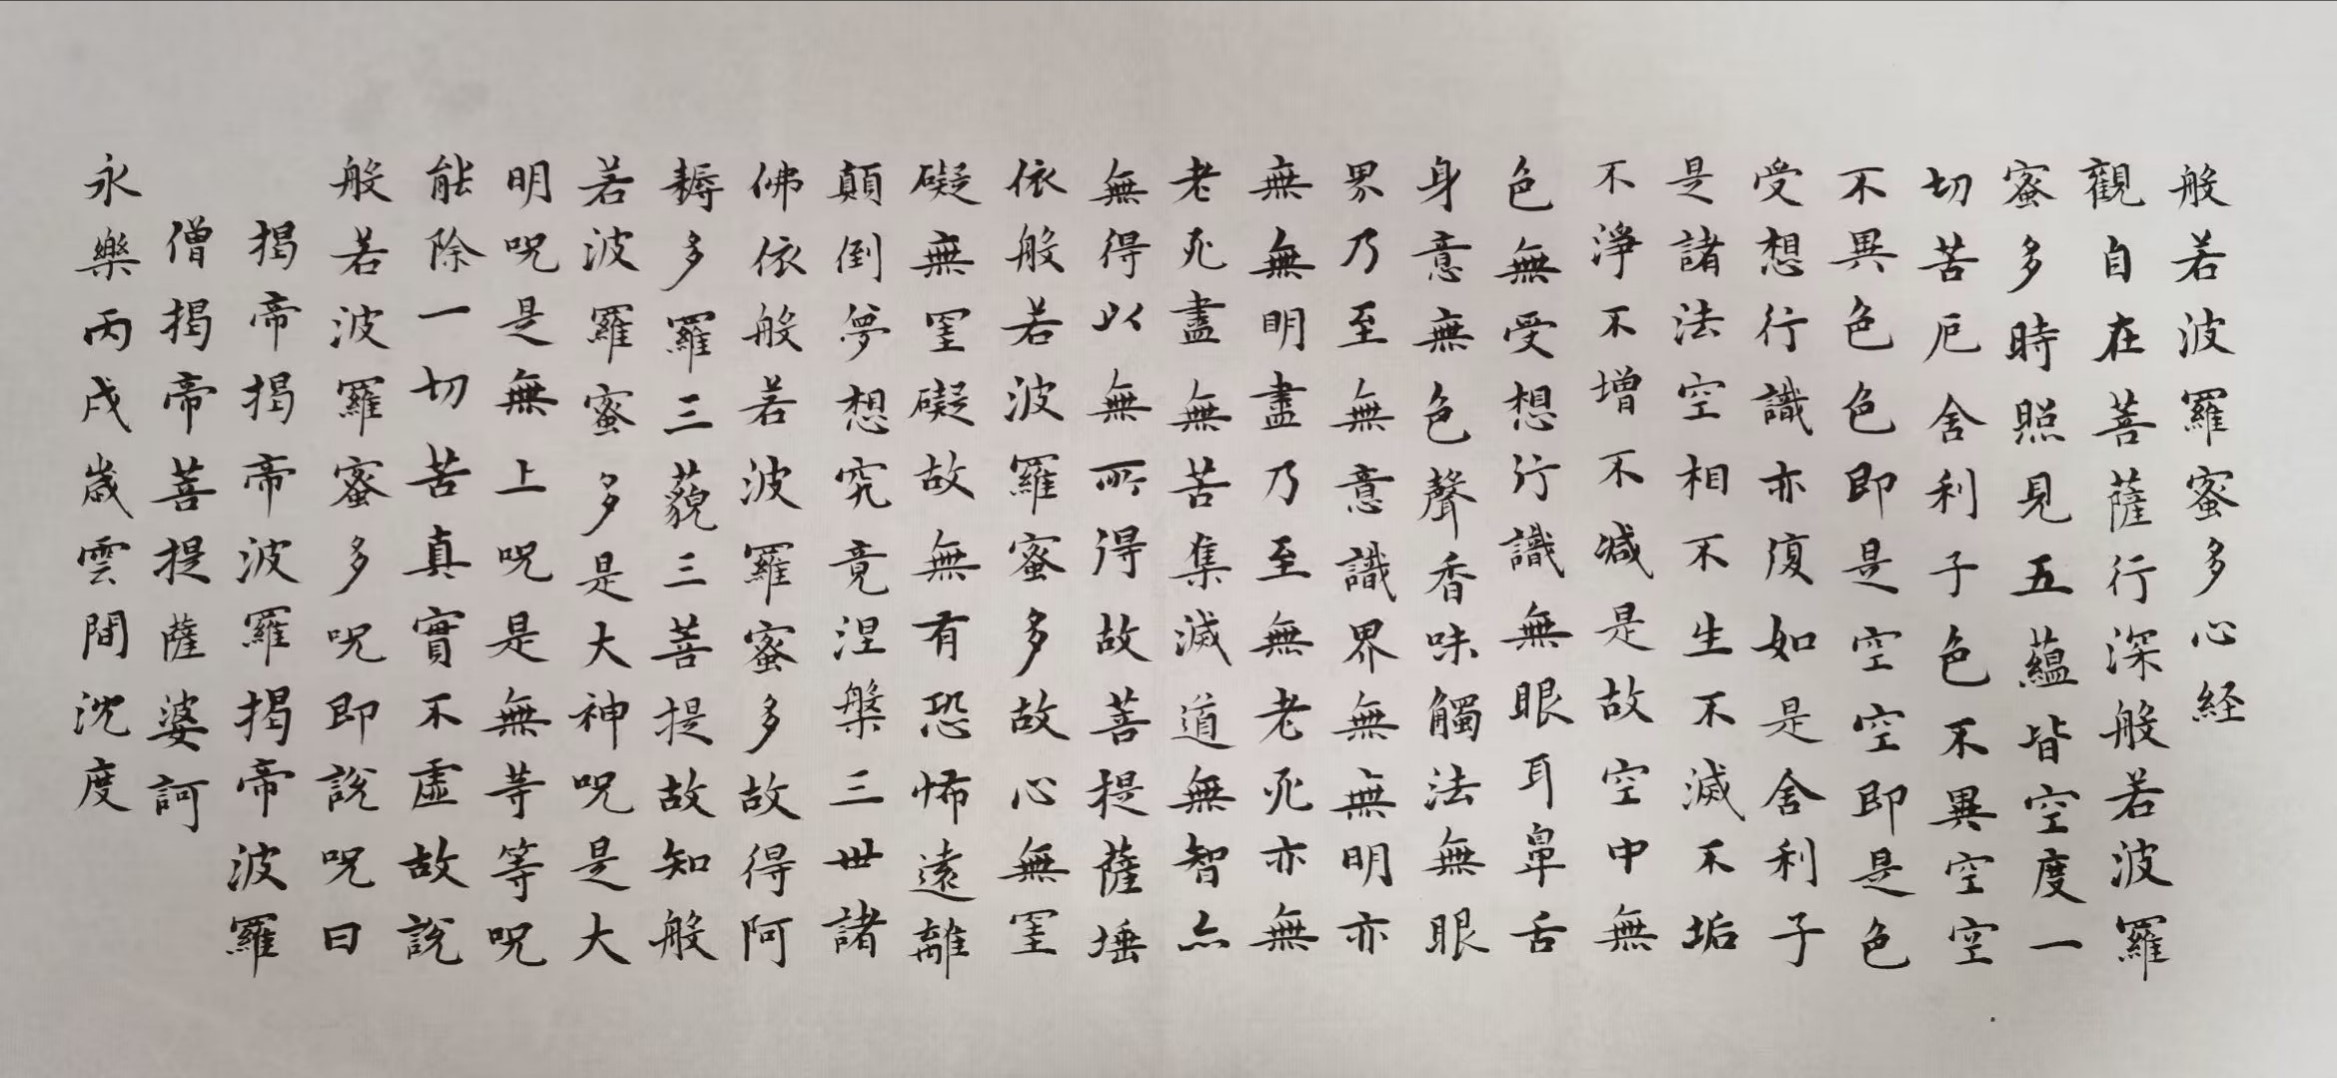 般若波羅蜜多心経
觀自在菩薩行深般若波羅
蜜多時照見五蘊皆空度一
切苦厄舍利子色不異空空
不異色色即是空空即是色
受想行識亦復如是舍利子
是諸法空相不生不滅不垢
不淨不增不減是故空中無
色無受想行識無眼耳鼻舌
身意無色聲香味觸法無眼
界乃至無意識界無無明亦
無無明盡乃至無老死亦無
老死盡無苦集滅道無智亦
無得以無所得故菩提薩埵
依般若波羅蜜多故心無罣
礙無罣礙故無有恐怖遠離
顛倒夢想究竟涅槃三世諸
佛依般若波羅蜜多故得阿
耨多羅三藐三菩提故知般
若波羅蜜多是大神呪是大
明呪是無上呪是無等等呪
能除一切苦真實不虛故說
般若波羅蜜多呪即說呪曰
揭帝揭帝波羅揭帝波羅
僧揭帝菩提薩婆訶
永樂丙戌歲雲間沈度